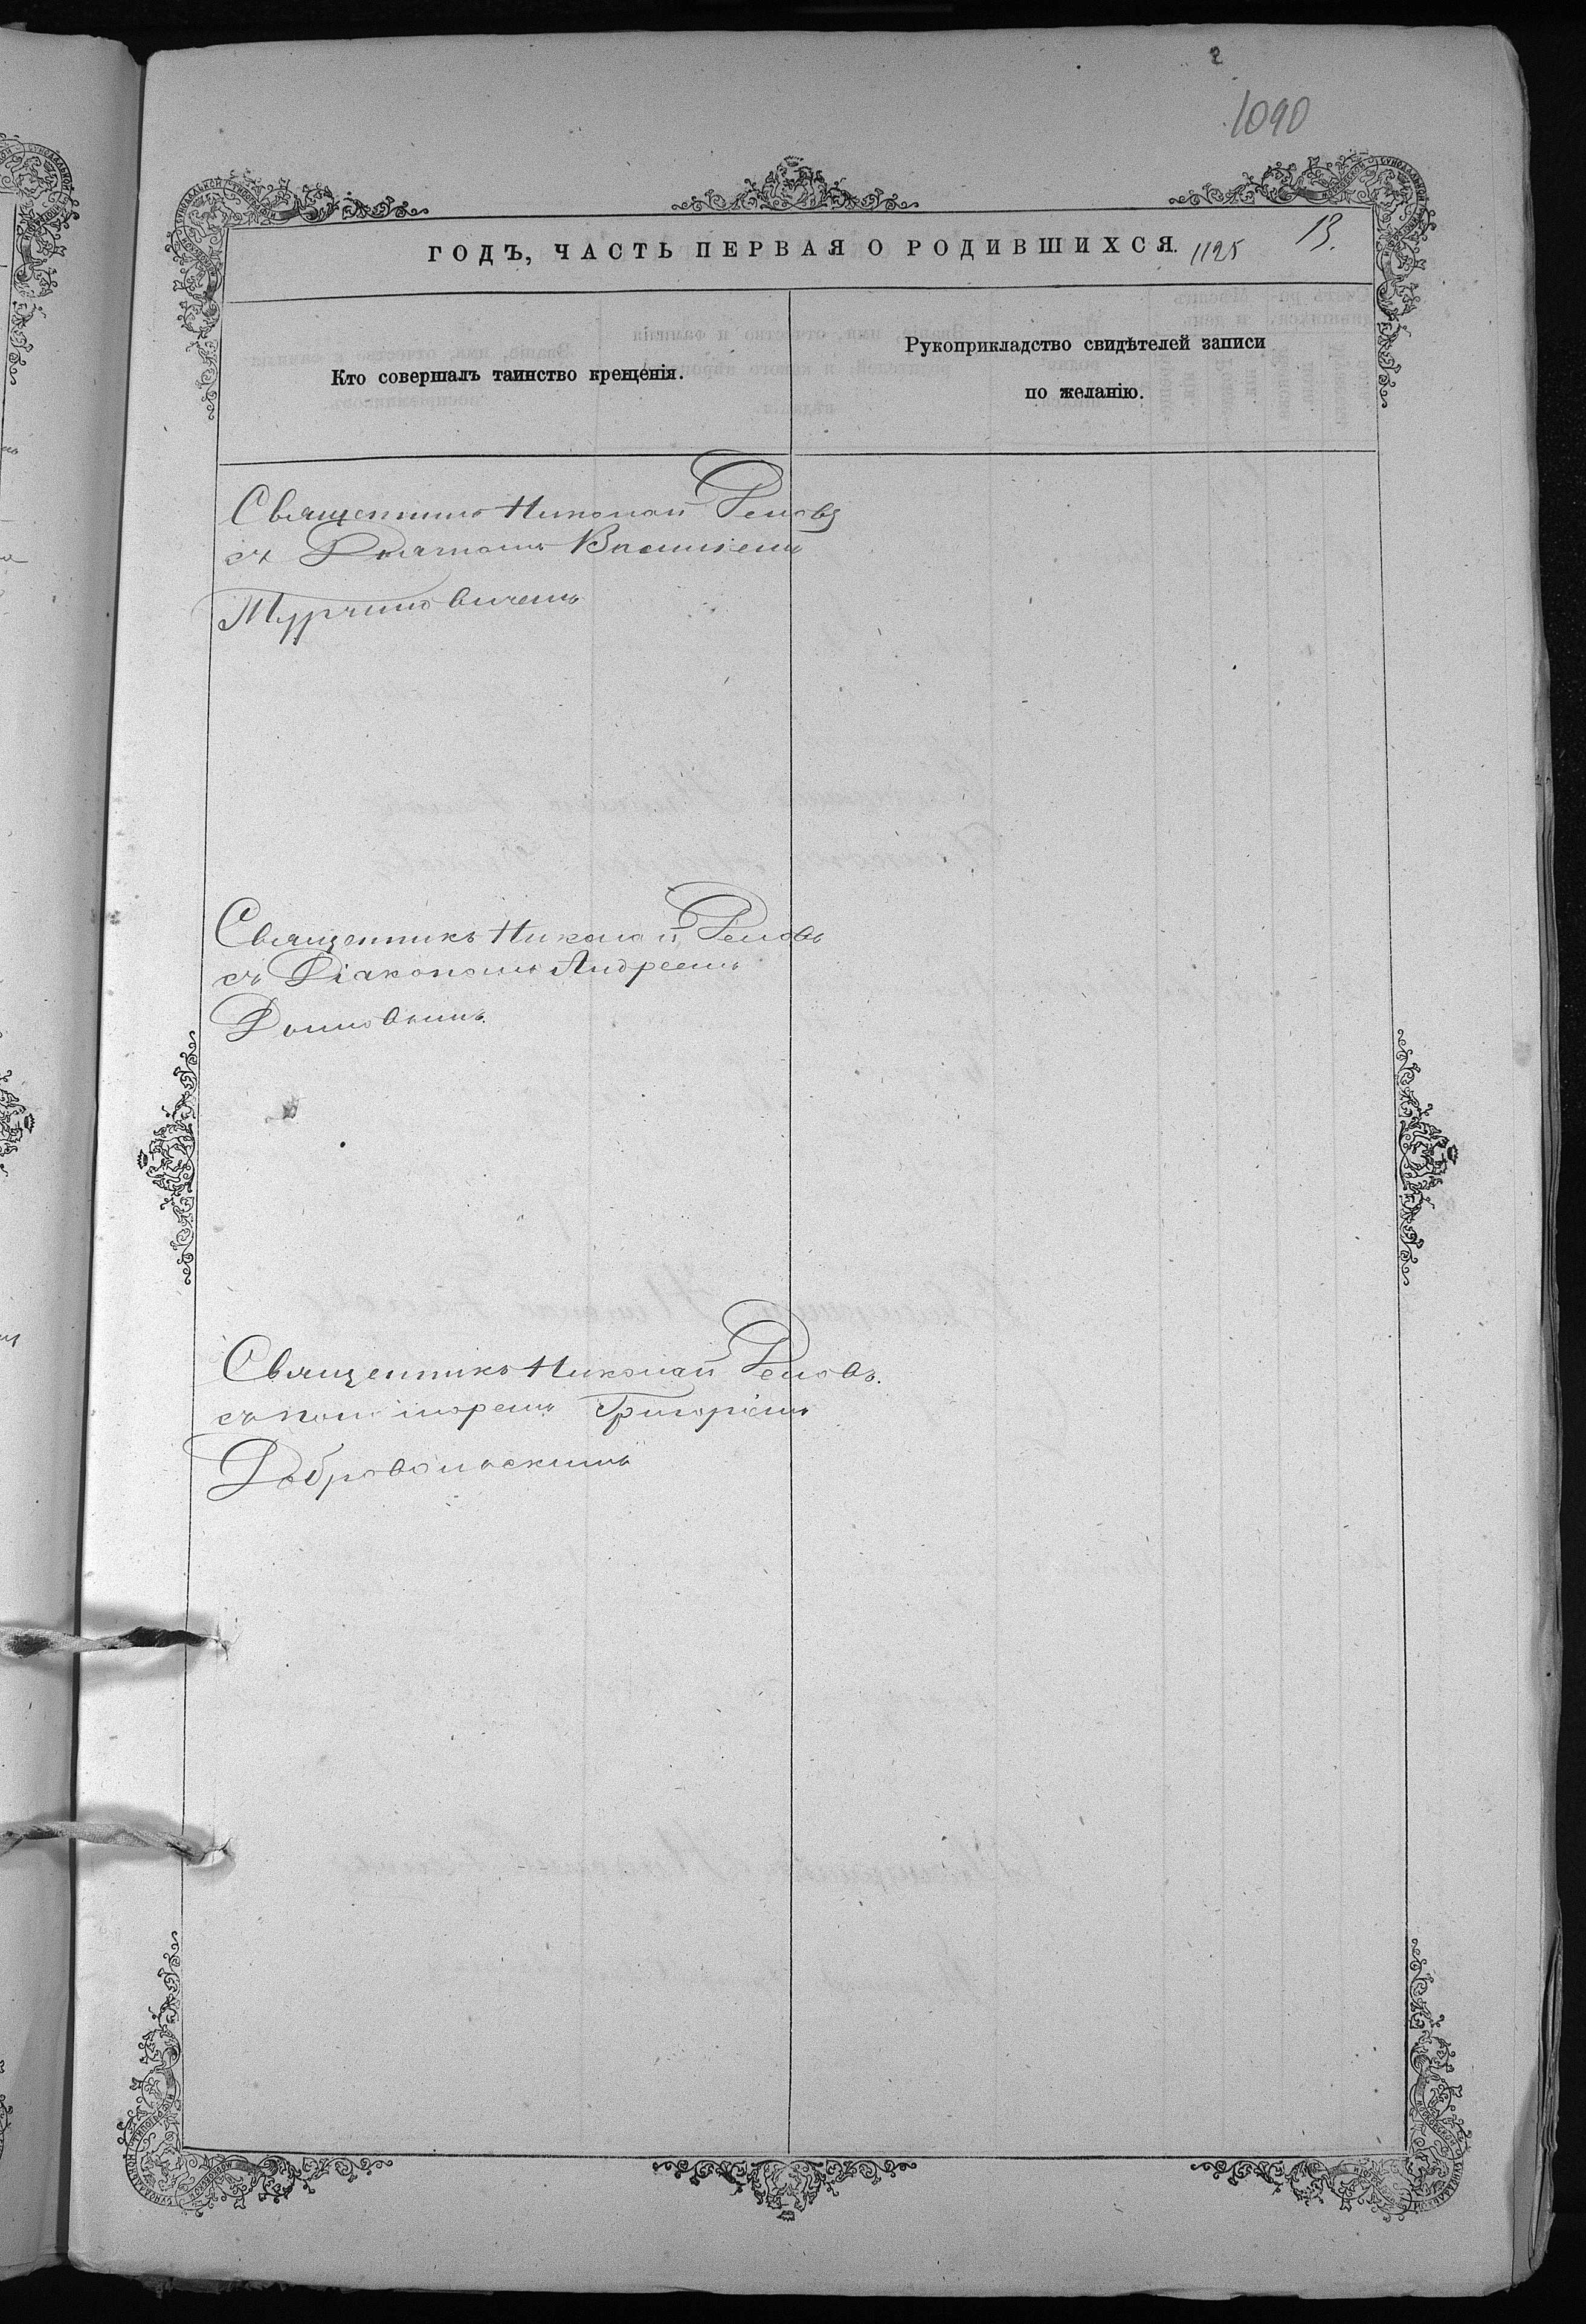 2
1090
ГОДЪ, ЧАСТЬ ПЕРВАЯ О РОДИВШИХСЯ.
1125
13.
Кто совершалъ таинство крещенія.
Рукоприкладство свидѣтелей записи
по желанію.
Священникъ Николай Реловъ
съ Василіемъ
Турчиновичемъ
Священникъ Николай Реловъ
съ Діакономъ Андреемъ
Священникъ Николай Реловъ.
съ Григоріемъ
Добровольскимъ